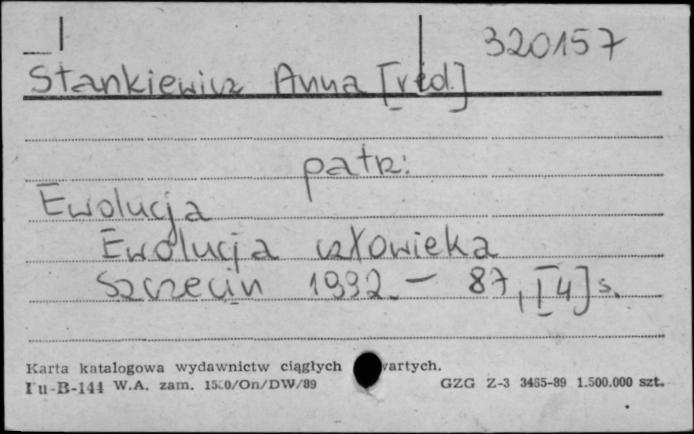 320157
Stankiewicz Anna [red.]
patrz:
Ewolucja
Ewolucja człowieka
Szczecin 1992. - 87, [4] s.
Karta katalogowa wydawnictw ciągłych wartych.
Pu-B-144 W.A. zam. /On/DW/89 GZG Z-3 3465-89 1.500.000 szt.